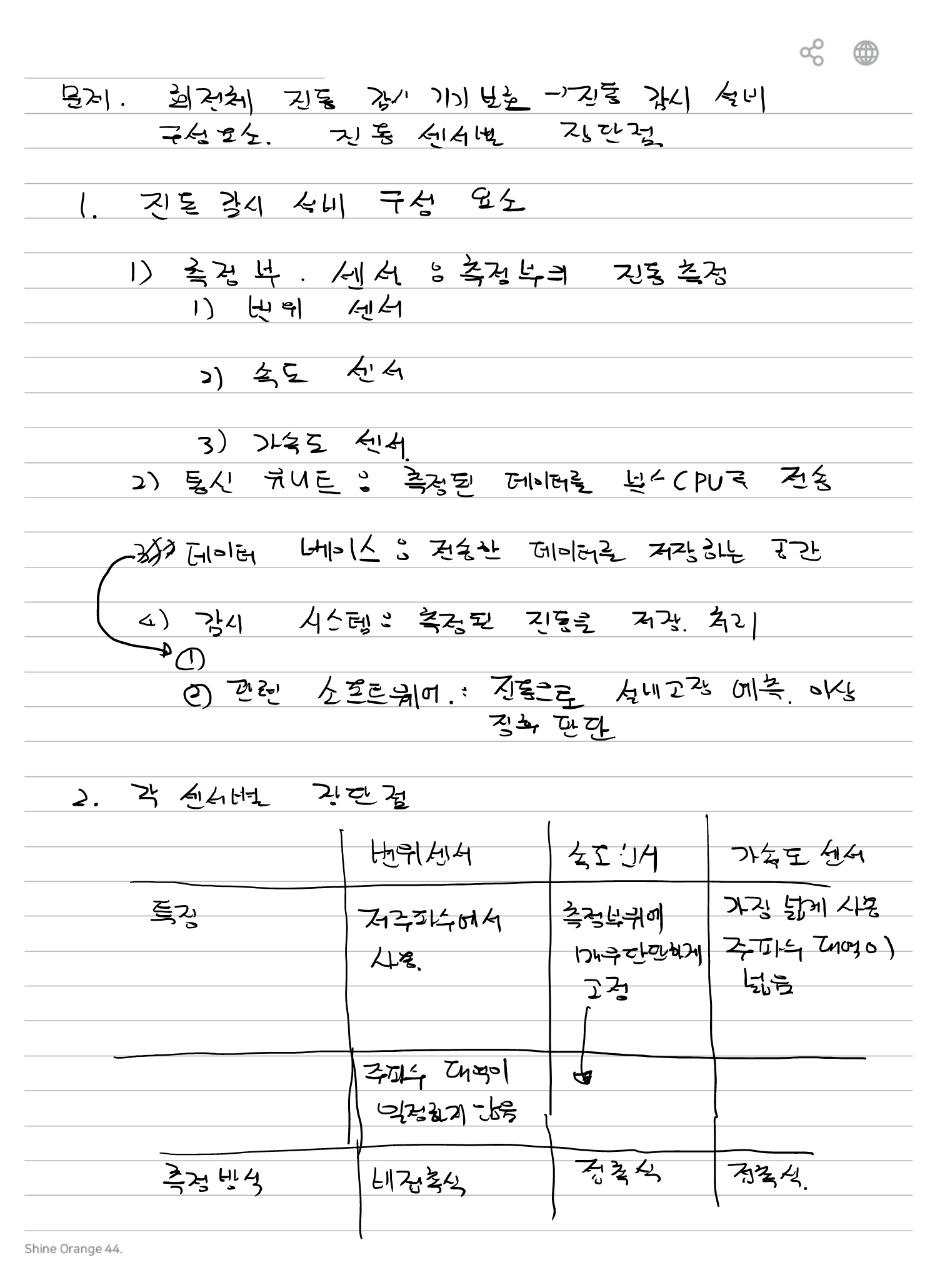 문제. 회전체 진동 감시 기기보호 → 진동 감시 설비
구성요소. 진동 센서별 장단점
1. 진동 감시 설비 구성 요소
1) 측정부. 센서 : 측정부의 진동측정
1) 변위 센서
2) 속도 센서
3) 가속도 센서.
2) 통신 유니트 : 측정된 데이터를 CPU로 전송
데이터 베이스 : 전송한 데이터를 저장하는 공간
4) 감시 시스템 : 측정된 진동을 저장. 처리
①
② 관련 소프트웨어. : 진동으로 고장 예측. 이상
징후 판단
2. 각 센서별 장단점
변위센서 속도센서 가속도 센서
특징 저주파수에서 사용. 측정부위에 매우단단하게 고정 가장 넓게 사용 주파수 대역이 넓음
주파수 대역이 일정하지 않음
측정방식 비접촉식 접촉식 접촉식.
Shine Orange 44.